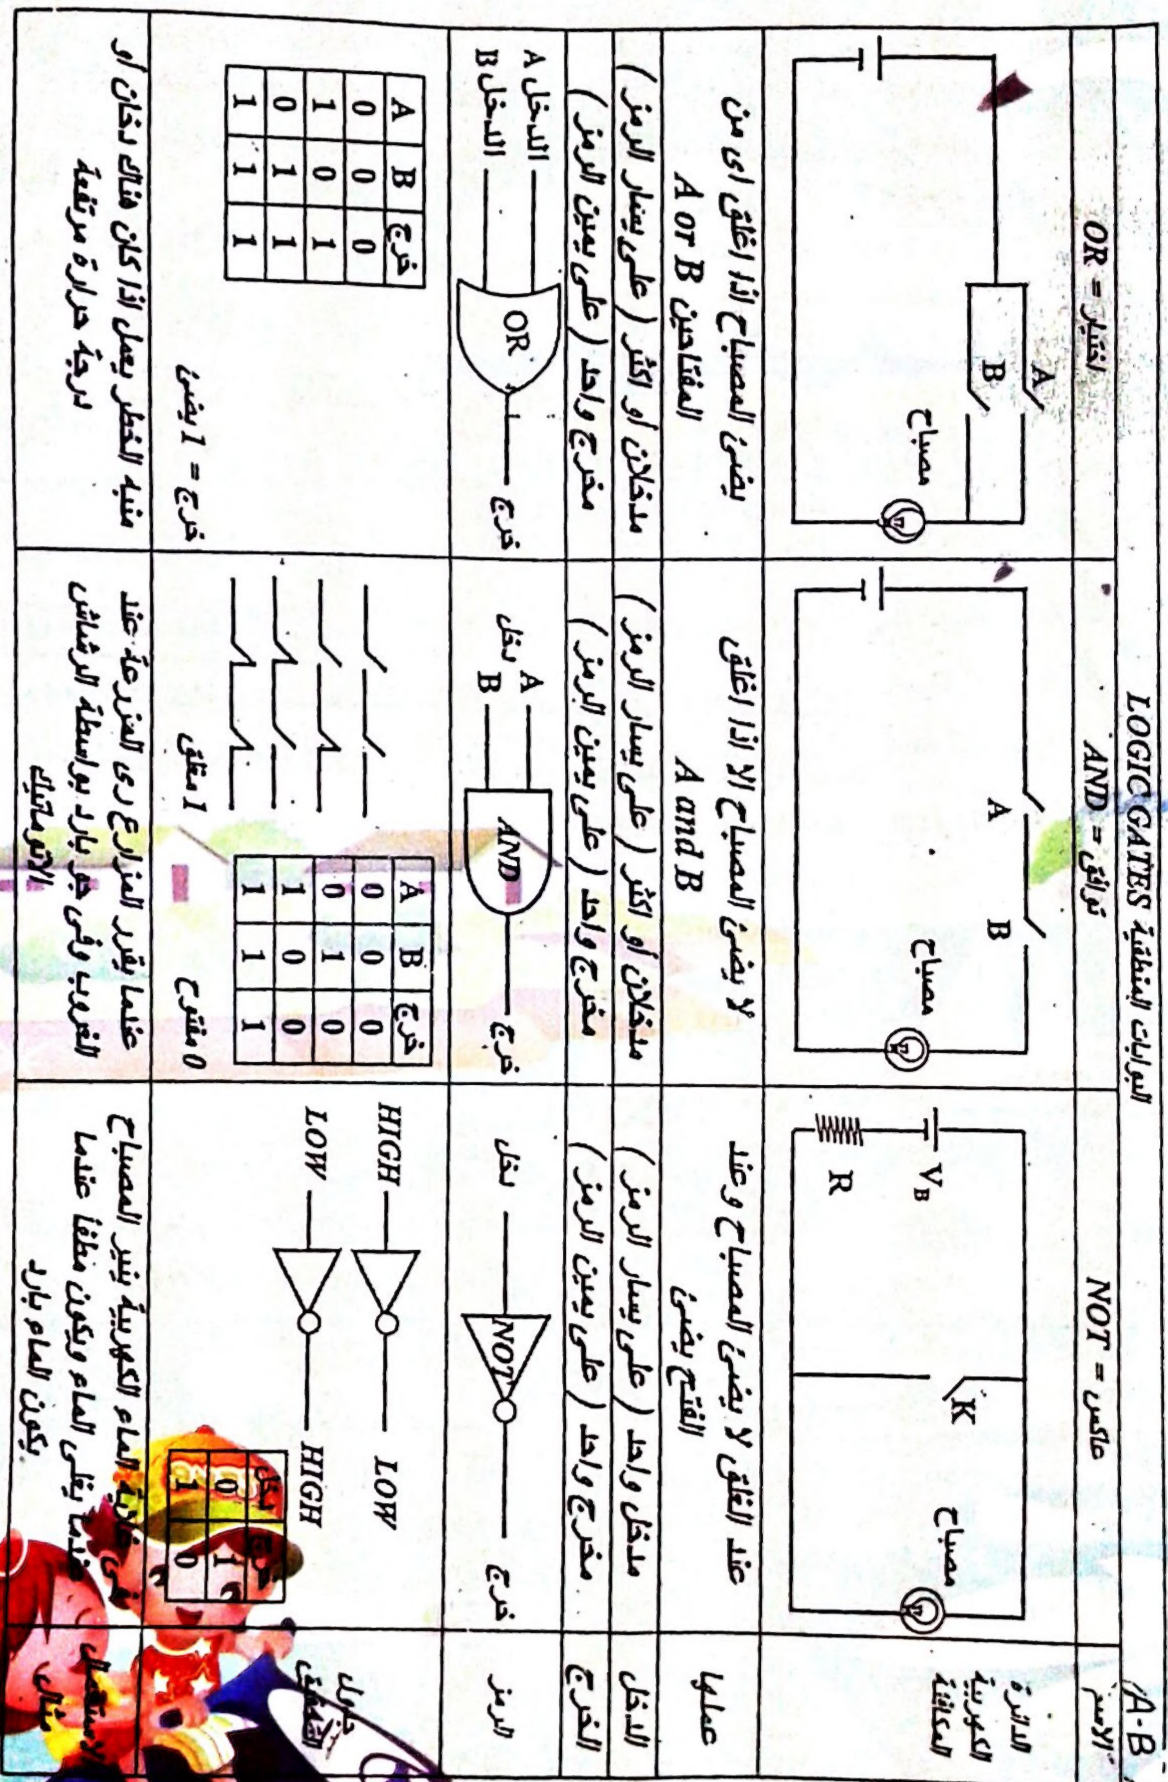 البوابات المنطقية LOGIC GATES
A-B
الاسم
NOT = عاكس
AND = توافق
OR = اختيار
الدائرة
الكهربية
المكافئة
V_B
R
K
مصباح
A
B
مصباح
A
B
مصباح
عملها
عند الغلق لا يضئ المصباح وعند
الفتح يضئ
لا يضئ المصباح الا اذا اغلق
A and B
يضئ المصباح اذا اغلق اى من
المفتاحين A or B
الدخل
مدخل واحد ( على يسار الرمز )
مدخلان أو اكثر ( على يسار الرمز )
مدخلان أو اكثر ( على يسار الرمز )
الخرج
مخرج واحد ( على يمين الرمز )
مخرج واحد ( على يمين الرمز )
مخرج واحد ( على يمين الرمز )
الرمز
دخل NOT خرج
دخل A B AND خرج
الدخل A
الدخل B
OR خرج
جدول
التحقيق
HIGH LOW
LOW HIGH
دخل خرج
0 1
1 0
A B خرج
0 0 0
0 1 0
1 0 0
1 1 1
1 مغلق 0 مفتوح
A B خرج
0 0 0
1 0 1
0 1 1
1 1 1
خرج = 1 يضئ
مثال
الاستعمال
فى غلاية الماء الكهربية ينير المصباح
عندما يغلى الماء ويكون مطفأ عندما
يكون الماء بارد
عندما يقرر المزارع رى المزرعة عند
الغروب وفى جو بارد بواسطة الرشاش
الأتوماتيك
منبه الخطر يعمل اذا كان هناك دخان أو
درجة حرارة مرتفعة